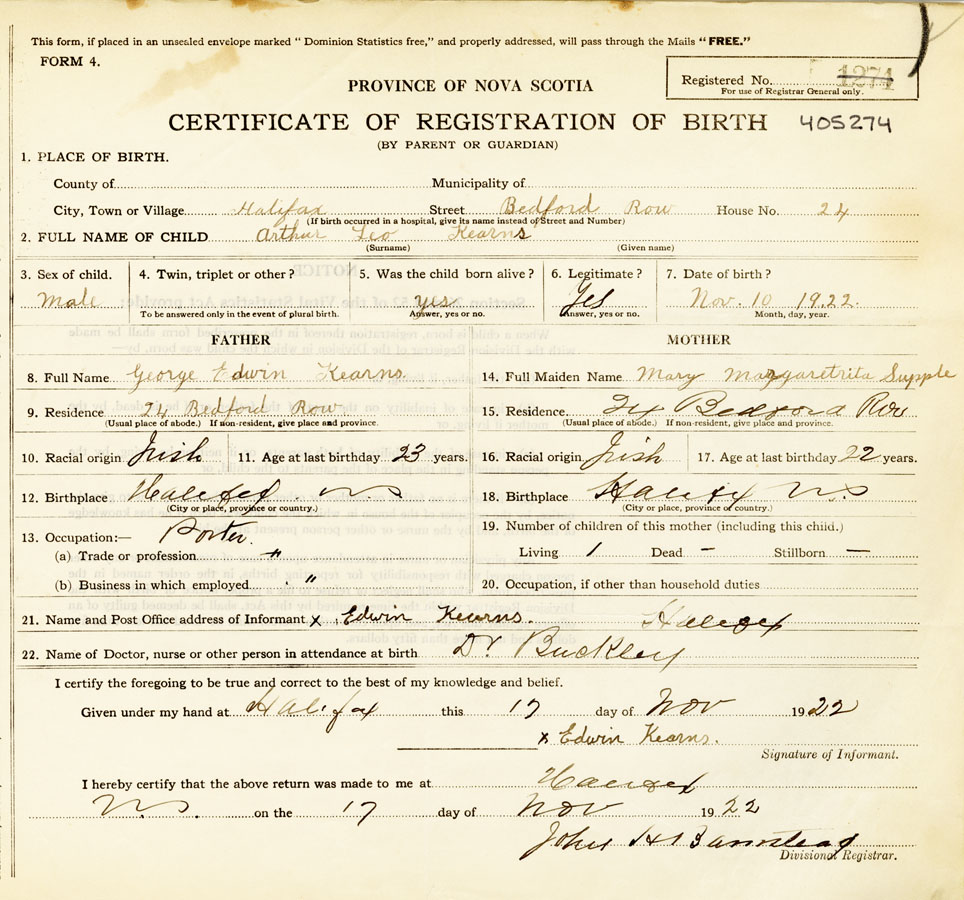 This form, if placed in an unsealed envelope marked "Dominion Statistics free," and properly addressed, will pass through the Mails "FREE."
FORM 4.
PROVINCE OF NOVA SCOTIA
Registered No. 1274
For use of Registrar General only.
CERTIFICATE OF REGISTRATION OF BIRTH 405274
(BY PARENT OR GUARDIAN)
1. PLACE OF BIRTH.
County of Municipality of
City, Town or Village Halifax Street Bedford Row House No. 24
(If birth occurred in a hospital, give its name instead of Street and Number)
2. FULL NAME OF CHILD Arthur Leo Kearns
(Surname) (Given name)
3. Sex of child. 4. Twin, triplet or other? 5. Was the child born alive? 6. Legitimate? 7. Date of birth?
Male yes Yes Nov. 10 1922.
To be answered only in the event of plural birth. Answer, yes or no. Answer, yes or no. Month, day, year.
FATHER MOTHER
8. Full Name George Edwin Kearns 14. Full Maiden Name Mary Margaretrita Supple
9. Residence 24 Bedford Row 15. Residence. 24 Bedford Row
(Usual place of abode.) If non-resident, give place and province. (Usual place of abode.) If non-resident, give place and province.
10. Racial origin Irish 11. Age at last birthday 23 years. 16. Racial origin Irish 17. Age at last birthday 22 years.
12. Birthplace Halifax N S 18. Birthplace Halifax N S
(City or place, province or country.) (City or place, province or country.)
13. Occupation:— Porter. 19. Number of children of this mother (including this child.)
(a) Trade or profession " Living 1 Dead – Stillborn —
(b) Business in which employed " 20. Occupation, if other than household duties
21. Name and Post Office address of Informant x Edwin Kearns. Halifax
22. Name of Doctor, nurse or other person in attendance at birth Dr Buckley
I certify the foregoing to be true and correct to the best of my knowledge and belief.
Given under my hand at Halifax this 17 day of Nov 1922
x Edwin Kearns.
Signature of Informant.
I hereby certify that the above return was made to me at Halifax
N.S. on the 17 day of Nov 1922
John H Barnstead
Divisional Registrar.